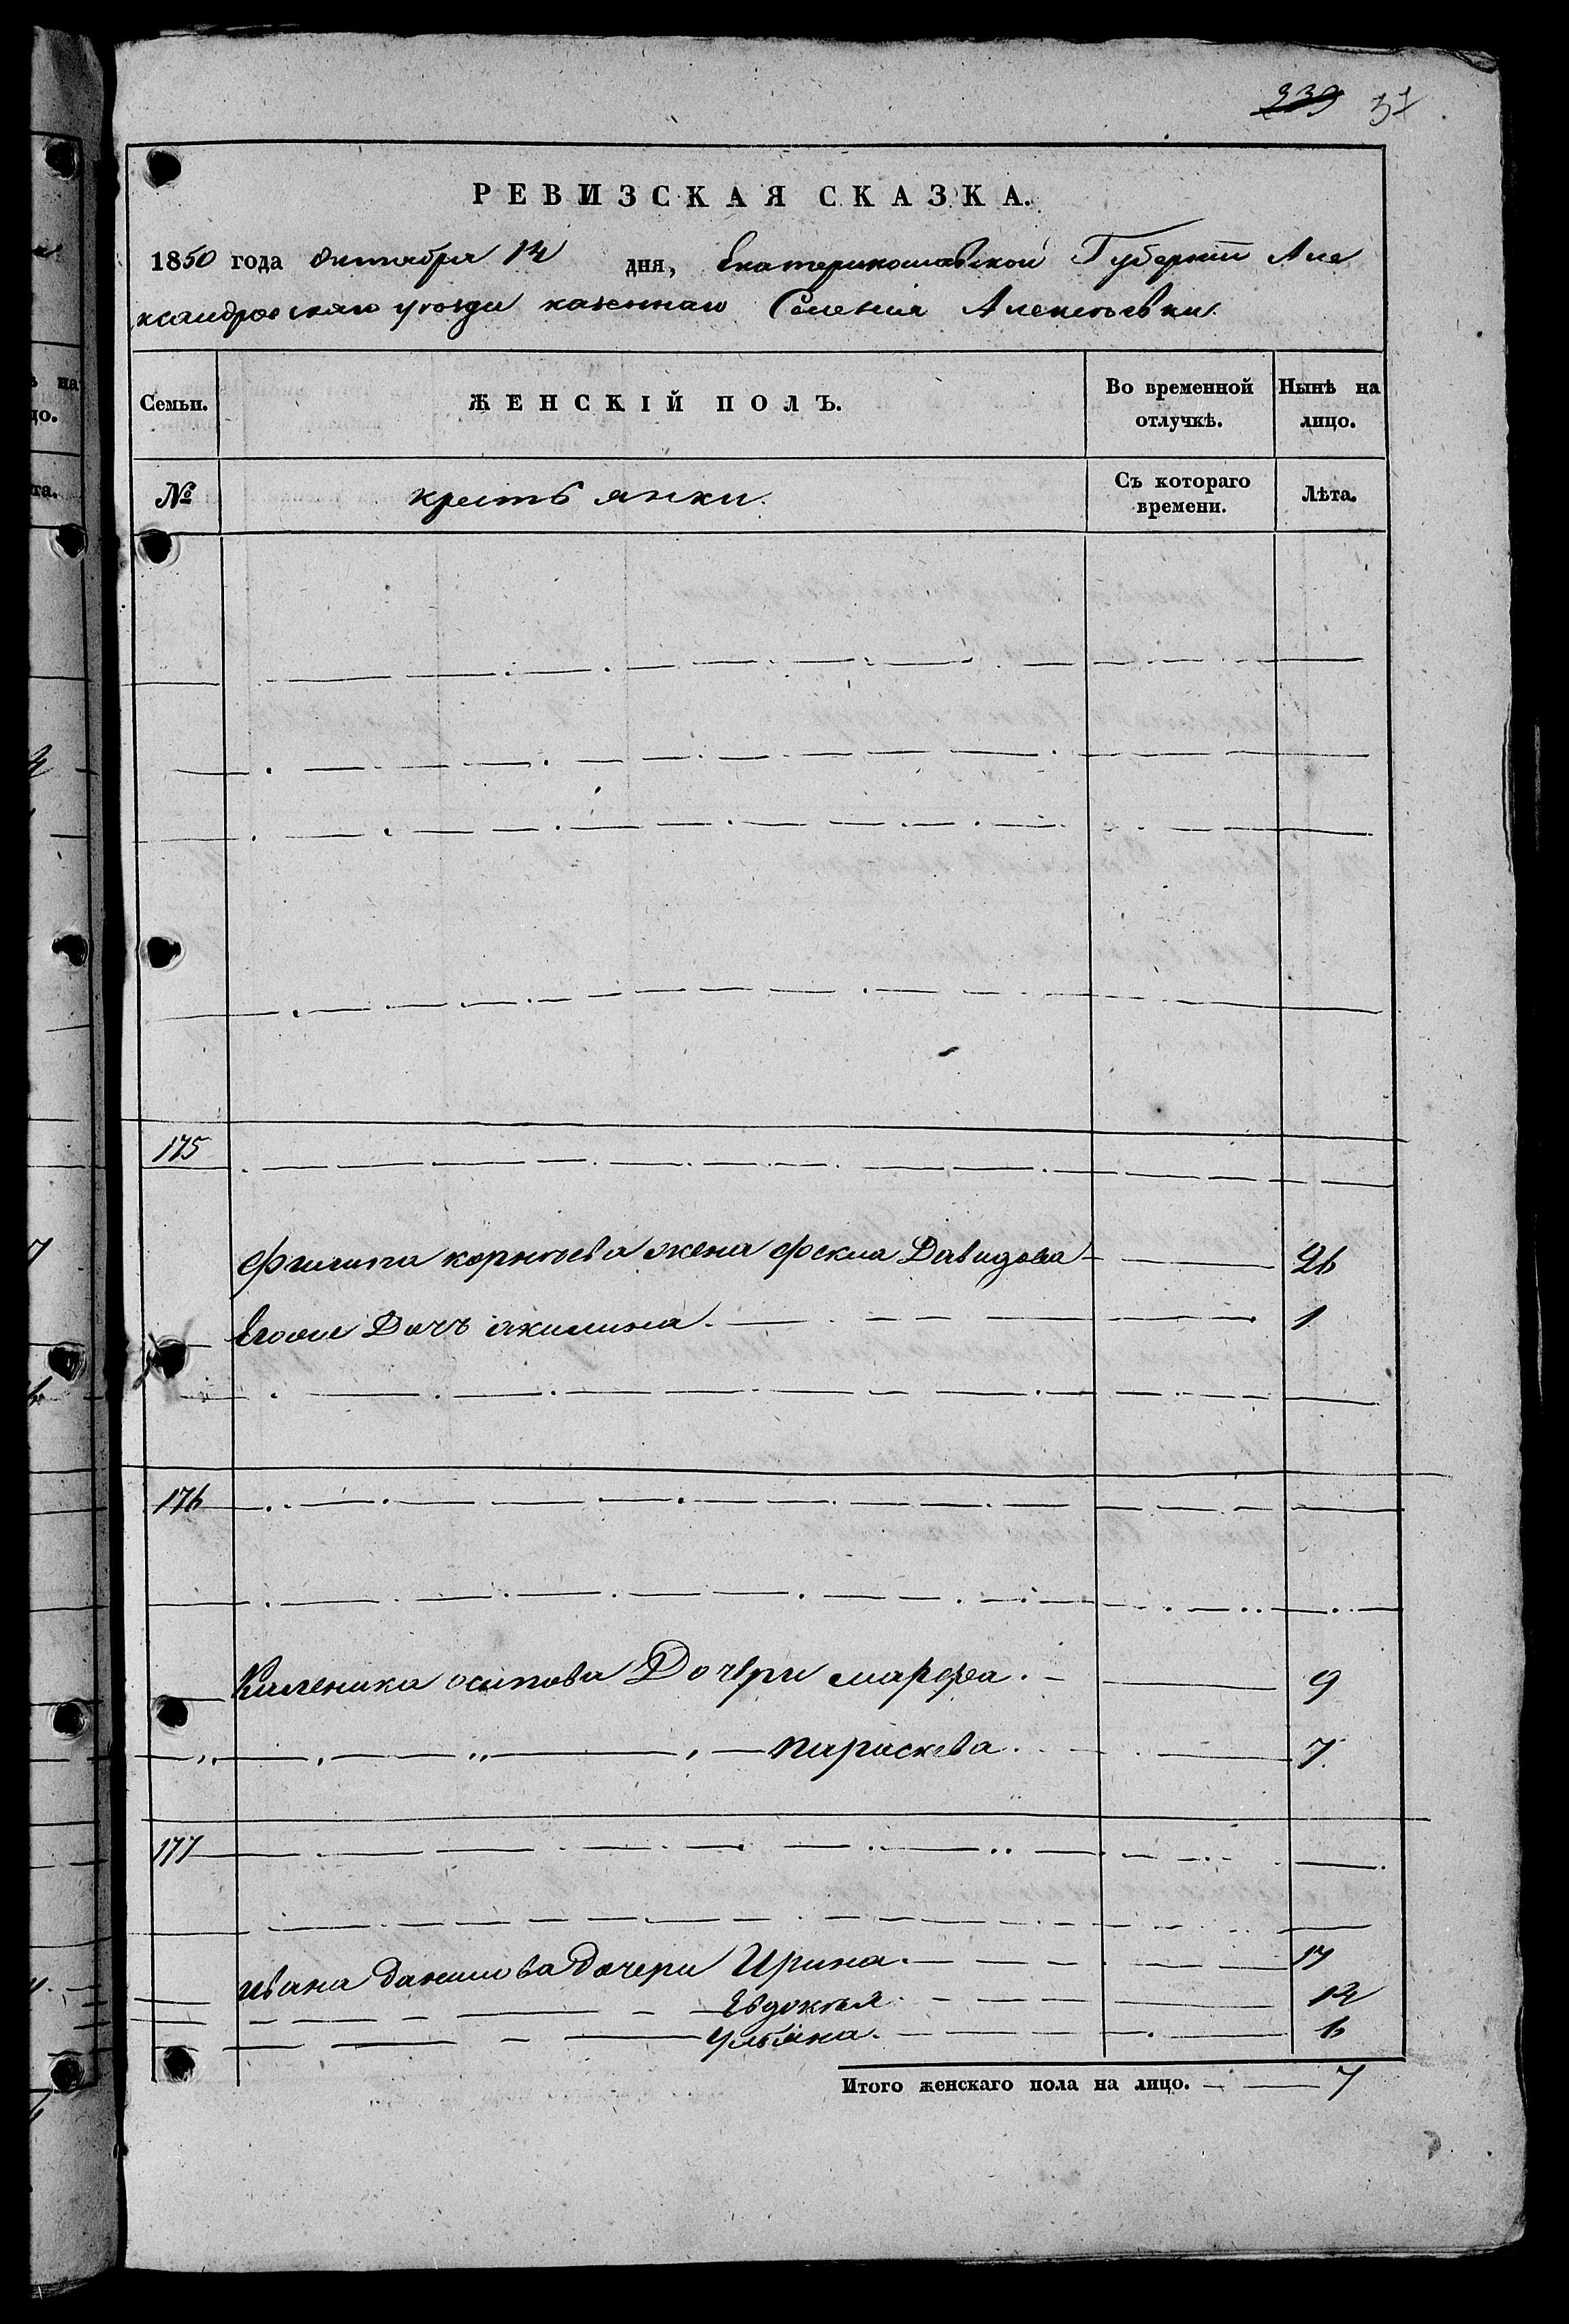 339 37
РЕВИЗСКАЯ СКАЗКА.
1850 года Октября 14 дня, Екатеринославской Губернiи Але
ксандровскаго уѣзда казеннаго Селенiя Алексѣевки.
Семьи. ЖЕНСКIЙ ПОЛЪ. Во временной отлучкѣ. Нынѣ на лицо.
№ крестьянки. Съ котораго времени. Лѣта.
175
Филипа корнѣева жена Фекла Давидова 26
Егоже Дочь акилина 1
176
Каленика осипова Дочери марфа 9
" " " параскева 7
177
ивана данилова дочери Ирина 17
Евдокѣя 12
Ульяна 6
Итого женскаго пола на лицо. 7
на
цо.
та.